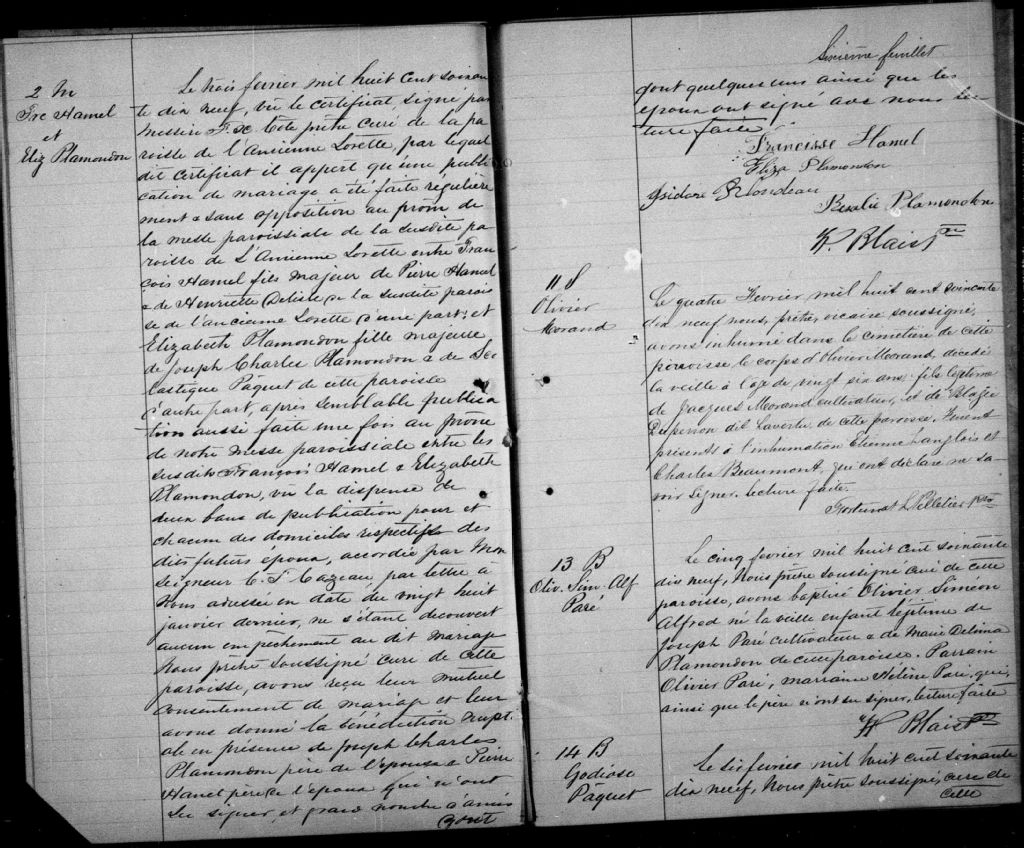 2 M
Frs Hamel
et
Eliz Plamondon
Le trois fevrier mil huit cent soixan
te dix neuf, vu le certificat signé par
messire F. X. Côté prêtre curé de la pa
roisse de l'Ancienne Lorette, par lequel
dit certificat il appert qu'une publi
cation de mariage a été faite régulière
ment & sans opposition au prône de
la messe paroissiale de la susdite pa
roisse de L'Ancienne Lorette entre Fran
çois Hamel fils majeur de Pierre Hamel
& de Henriette Delisle de la susdite parois
se de l'ancienne Lorette d'une part; et
Elizabeth Plamondon fille majeure
de Joseph Charles Plamondon & de Sco
lastique Pâquet de cette paroisse
d'autre part, après semblable publica
tion aussi faite une fois au prône
de notre messe paroissiale entre les
susdits François Hamel & Elizabeth
Plamondon, vu la dispense de
deux bans de publication pour et
chacun des domiciles respectifs des
dits futurs époux, accordée par Mon
seigneur C. F. Cazeau, par lettre à
Nous adressée en date du vingt huit
janvier dernier, ne s'étant decouvert
aucun empêchement au dit mariage
Nous prêtre soussigné curé de cette
paroisse, avons reçu leur mutuel
consentement de mariage et leur
avons donné la bénédiction nupti
ale en présence de Joseph Charles
Plamondon père de l'épouse & Pierre
Hamel père de l'époux qui n'ont
su signer, et grand nombre d'amis
dont
Sixième feuillet
dont quelques uns ainsi que les
époux ont signé avec nous lec
ture faite
Francisse Hamel
Eliza Plamondon
Ysidore Rondeau
Rosalie Plamondon
Blais Ptre
11 S
Olivier
Morand
Le quatre Fevrier mil huit cent soixante
dix neuf nous, prêtre, vicaire soussigné,
avons inhumé dans le cimetière de cette
parroisse le corps d'Olivier Morand, décédé
la veille à l'age de vingt six ans, fils légitime
de Jacques Morand cultivateur, et de
Duperron dit Lavertu de cette paroisse. Furent
présents à l'inhumation Etienne Langlois et
Charles Beaumont, qui ont déclaré ne sa-
voir signer. Lecture faite.
Pelletier Ptre
13 B
Oliv. Sim. Alf
Paré
Le cinq fevrier mil huit cent soixante
dix neuf, Nous prêtre soussigné curé de cette
paroisse, avons baptisé Olivier Siméon
Alfred né la veille enfant légitime de
Joseph Paré cultivateur & de Marie Delima
Plamondon de cette paroisse. Parrain
Olivier Paré, marraine Hélène Paré, qui,
ainsi que le père n'ont su signer, lecture faite
Blais Ptre
14 B
Godiose
Pâquet
Le six fevrier mil huit cent soixante
dix neuf, Nous prêtre soussigné, curé de
cette